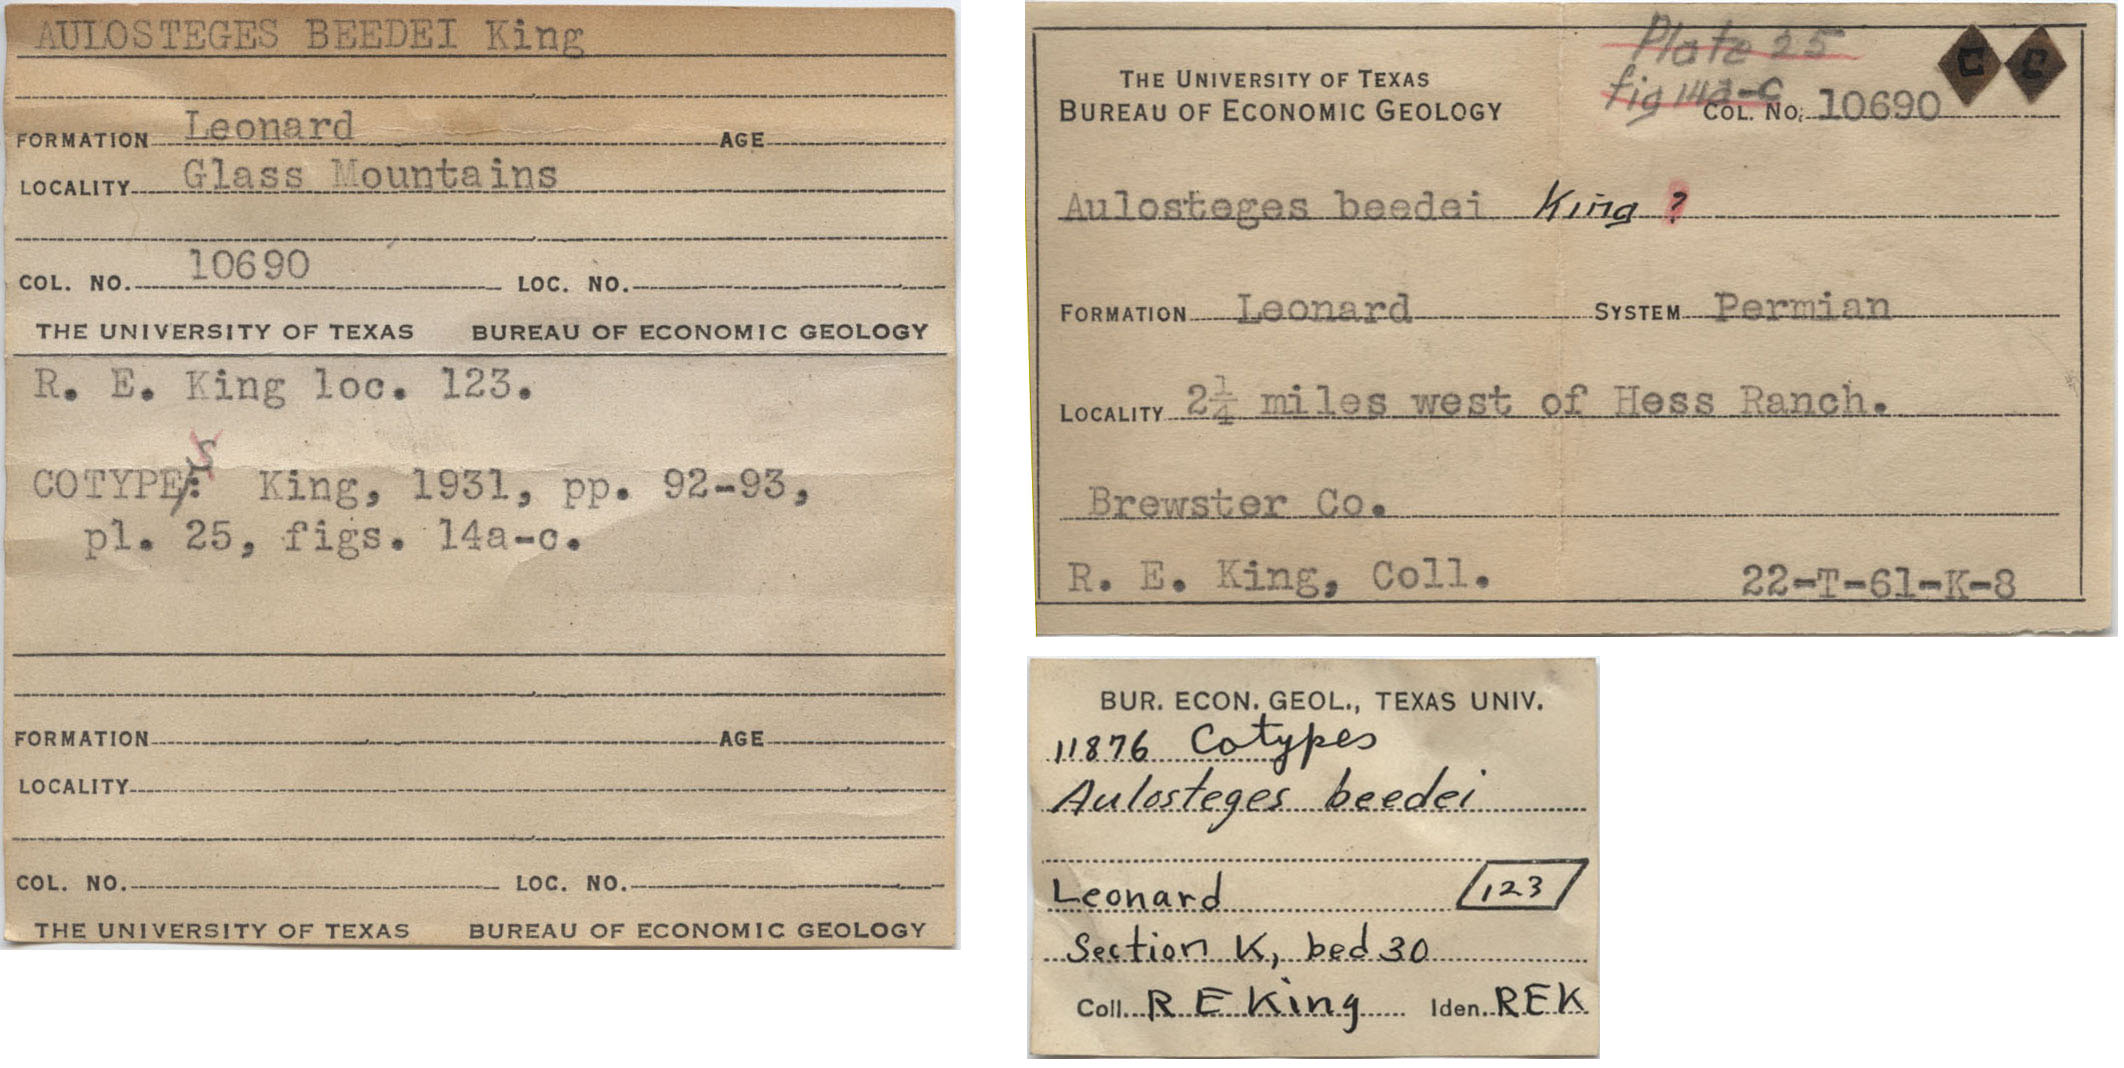 AULOSTEGES BEEDEI King
FORMATION Leonard AGE
LOCALITY Glass Mountains
COL. NO. 10690 LOC. NO.
THE UNIVERSITY OF TEXAS BUREAU OF ECONOMIC GEOLOGY
R. E. King loc. 123.
COTYPES: King, 1931, pp. 92-93,
pl. 25, figs. 14a-c.
FORMATION AGE
LOCALITY
COL. NO. LOC. NO.
THE UNIVERSITY OF TEXAS BUREAU OF ECONOMIC GEOLOGY
Plate 25
fig 14a-c
C C
THE UNIVERSITY OF TEXAS
BUREAU OF ECONOMIC GEOLOGY COL. NO. 10690
Aulosteges beedei King ?
FORMATION Leonard SYSTEM Permian
LOCALITY 2¼ miles west of Hess Ranch.
Brewster Co.
R. E. King, Coll. 22-T-61-K-8
BUR. ECON. GEOL., TEXAS UNIV.
11876 Cotypes
Aulosteges beedei
Leonard 123
Section K, bed 30
Coll. R E King Iden. REK